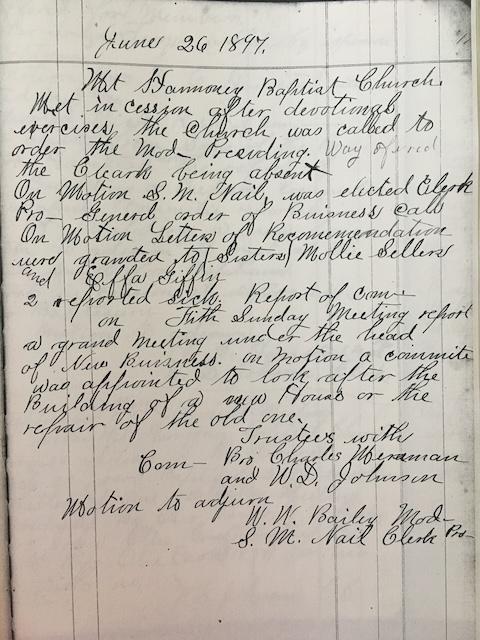 June 26 1897.
Mt Harmoney Baptist Church
Met in cession after devotional
exercises, the Church was called to
order the Mod- Presiding. Way of red
the Cleark being absent
On Motion S. M. Nail, was elected Clerk
Pro- General order of Buisness Call
On Motion Letters of Recomemendation
were grandted to (Sisters) Mollie Sellers
and Effa Giffin
2 reported Sick. Report of com-
on Fifth Sunday Meeting report
a grand Meeting under the head
of New Buisness. on Motion a commite
was appointed to look after the
Building of a new House or the
repair of the old one.
Trustees with
Com- Bro Charles
and W. D. Johnson
Motion to adjurn
W. W. Bailey Mod-
S. M. Nail Clerk Pro-